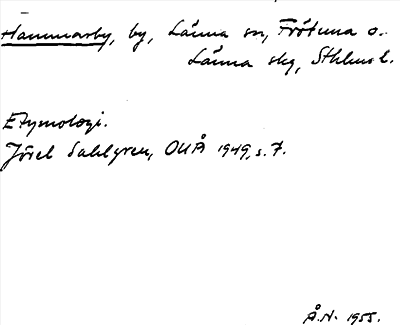 Hammarby, by, Länna sn, Frötuna o.
Länna skg, Sthlms l.
Etymologi.
Jöret Sahlgren, OUÅ 1949, s. 7.
Å.N. 1955.